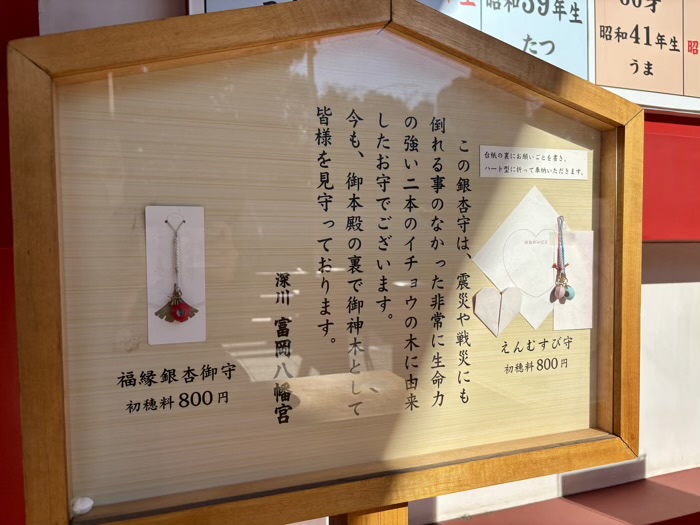 昭和39年生
たつ
60才
昭和41年生
うま
昭
台紙の裏にお願いごとを書き、
ハート型に折って奉納いただきます。
えんむすび守
初穂料800円
この銀杏守は、震災や戦災にも
倒れる事のなかった非常に生命力
の強い二本のイチョウの木に由来
したお守でございます。
今も、御本殿の裏で御神木として
皆様を見守っております。
深川 富岡八幡宮
福縁銀杏御守
初穂料800円